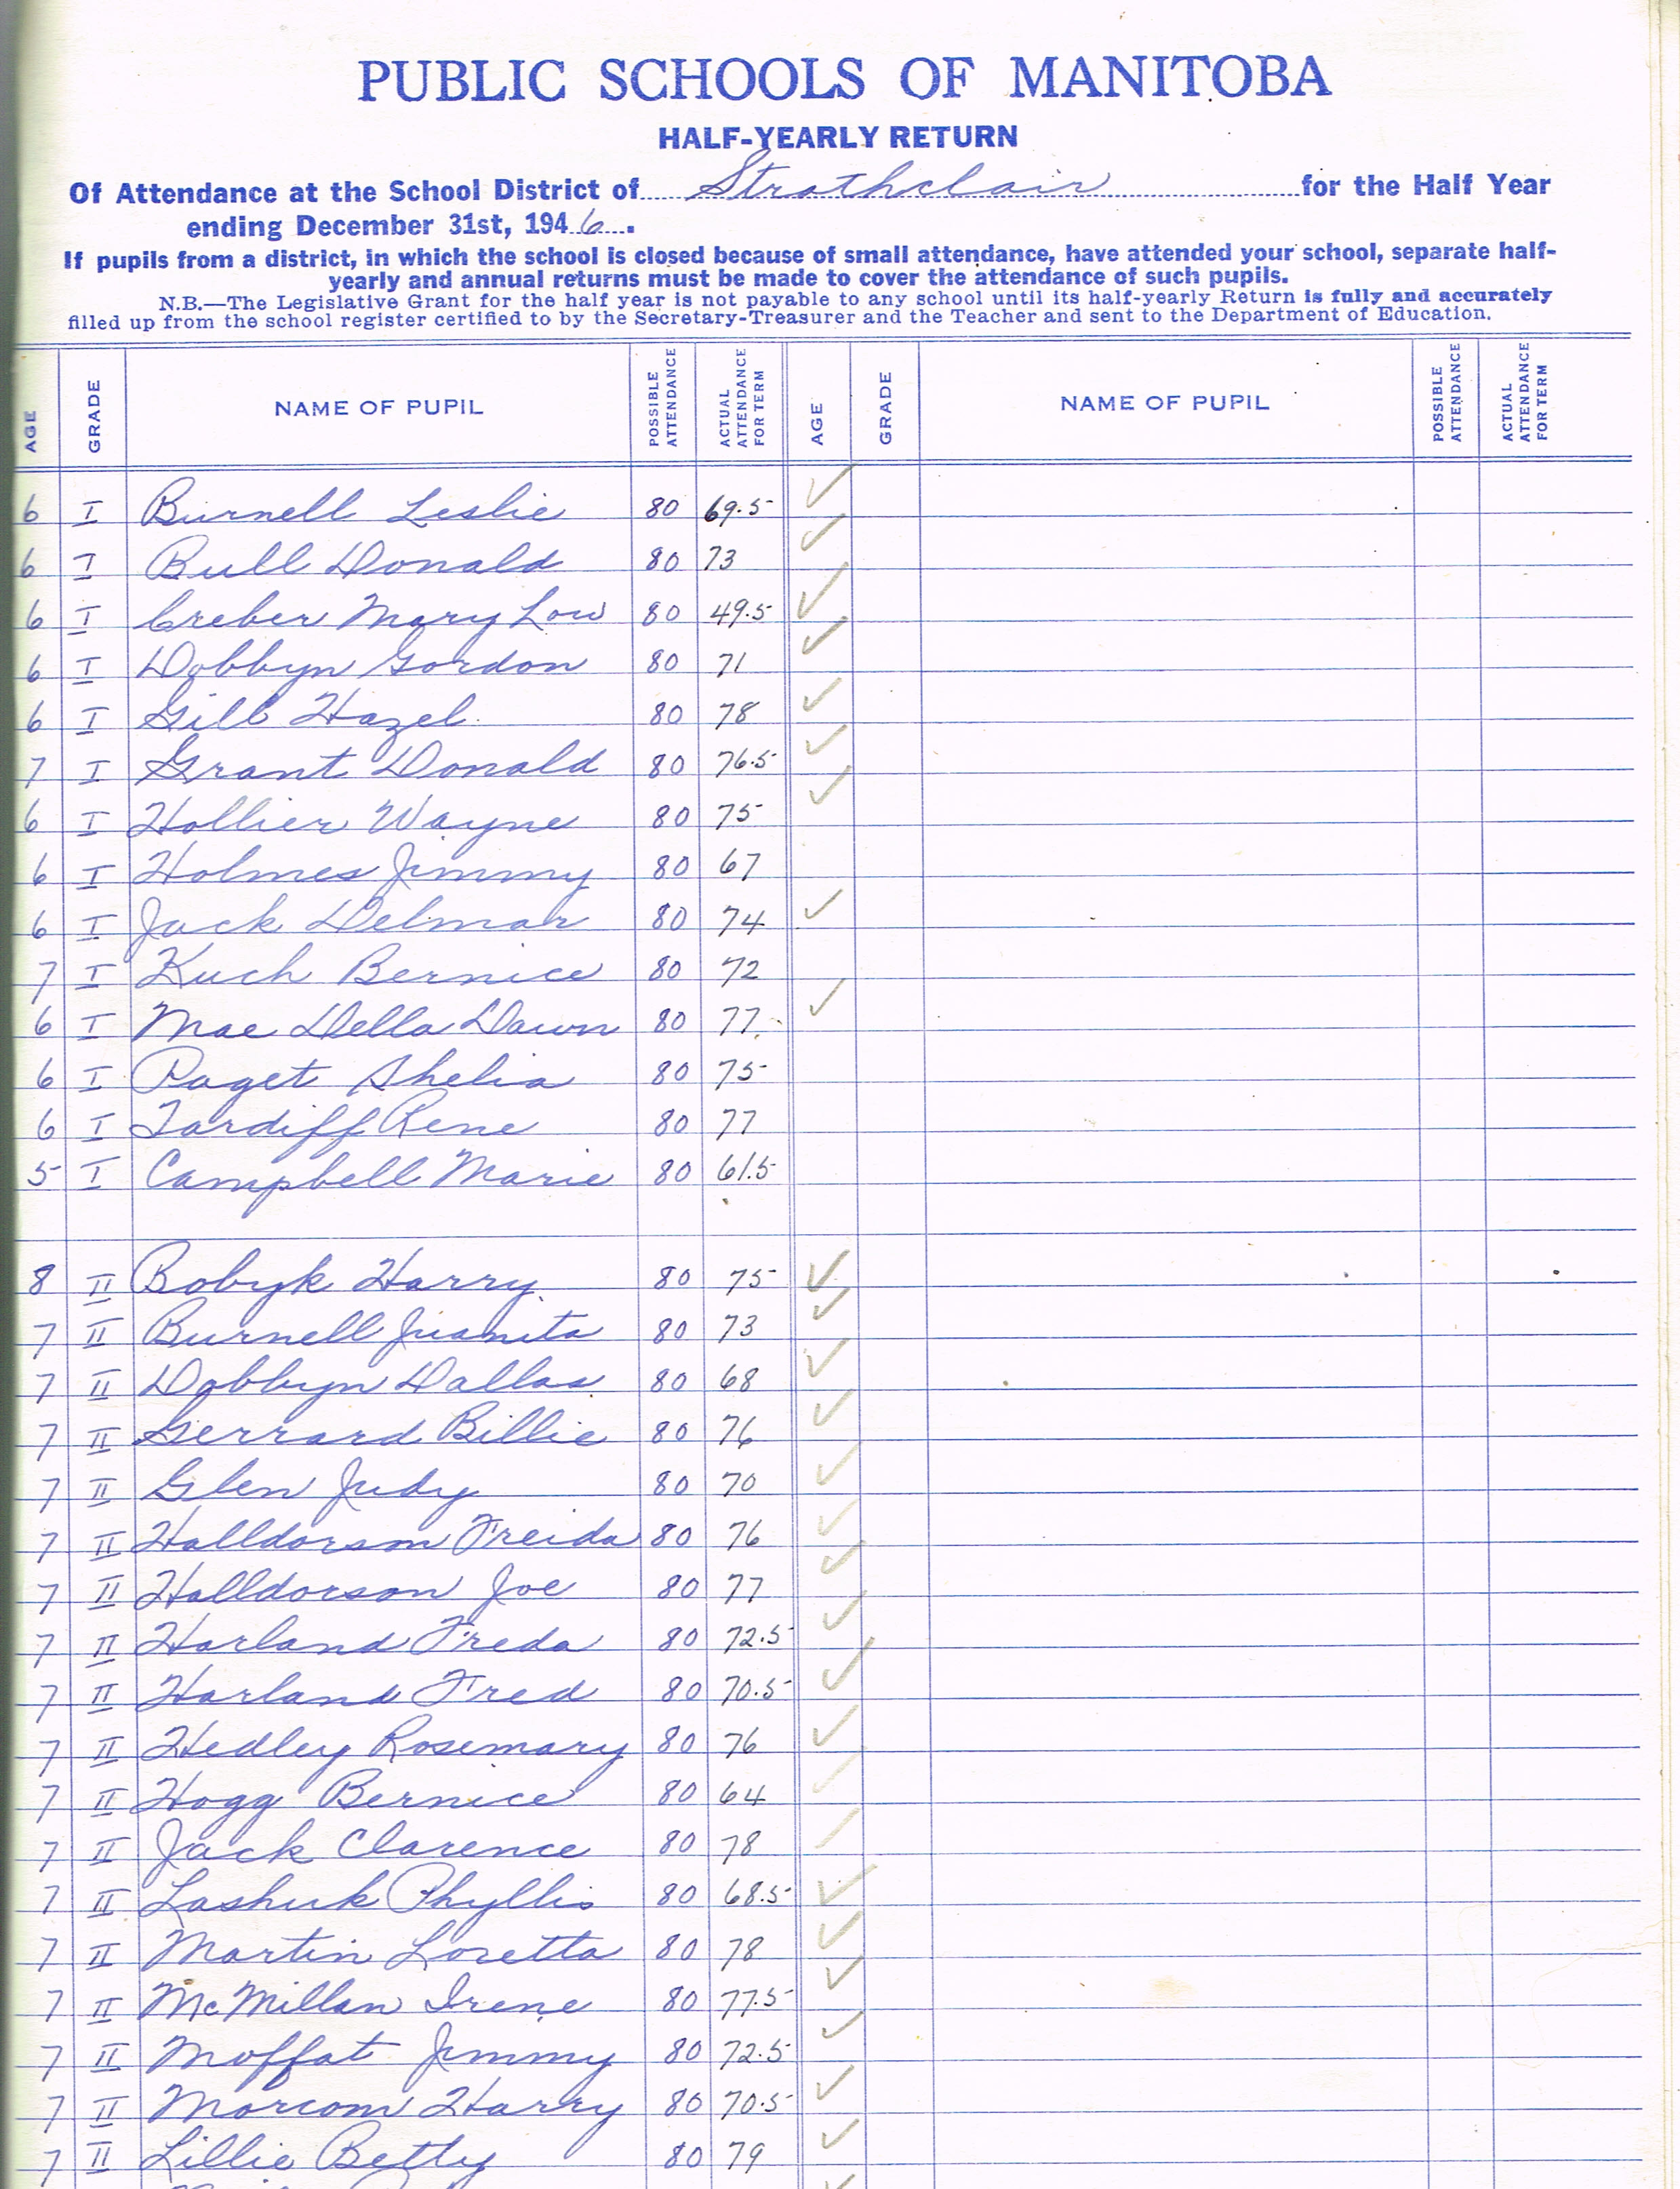 PUBLIC SCHOOLS OF MANITOBA
HALF-YEARLY RETURN
Of Attendance at the School District of Strathclair for the Half Year
ending December 31st, 1946.
If pupils from a district, in which the school is closed because of small attendance, have attended your school, separate half-
yearly and annual returns must be made to cover the attendance of such pupils.
N.B.—The Legislative Grant for the half year is not payable to any school until its half-yearly Return is fully and accurately
filled up from the school register certified to by the Secretary-Treasurer and the Teacher and sent to the Department of Education.
AGE GRADE NAME OF PUPIL POSSIBLE ATTENDANCE ACTUAL ATTENDANCE FOR TERM AGE GRADE NAME OF PUPIL POSSIBLE ATTENDANCE ACTUAL ATTENDANCE FOR TERM
6 I Burnell Leslie 80 69.5 ✓
6 I Bull Donald 80 73 ✓
6 I Creber Mary Lou 80 49.5 ✓
6 I Dobbyn Gordon 80 71 ✓
6 I Gill Hazel 80 78 ✓
7 I Grant Donald 80 76.5 ✓
6 I Hollier Wayne 80 75 ✓
6 I Holmes Jimmy 80 67
6 I Jack Delmar 80 74 ✓
7 I Kuch Bernice 80 72
6 I Mae Della Dawn 80 77 ✓
6 I Paget Shelia 80 75
6 I Tardiff Rene 80 77
5 I Campbell Marie 80 61.5
8 II Bobyk Harry 80 75 ✓
7 II Burnell Juanita 80 73 ✓
7 II Dobbyn Dallas 80 68 ✓
7 II Gerrard Billie 80 76 ✓
7 II Glen Judy 80 70 ✓
7 II Halldorson Freida 80 76 ✓
7 II Halldorson Joe 80 77 ✓
7 II Harland Freda 80 72.5 ✓
7 II Harland Fred 80 70.5 ✓
7 II Hedley Rosemary 80 76 ✓
7 II Hogg Bernice 80 64 ✓
7 II Jack Clarence 80 78 ✓
7 II Lashuk Phyllis 80 68.5 ✓
7 II Martin Loretta 80 78 ✓
7 II McMillan Irene 80 77.5 ✓
7 II Moffat Jimmy 80 72.5 ✓
7 II Morcom Harry 80 70.5 ✓
7 II Lillie Betty 80 79 ✓